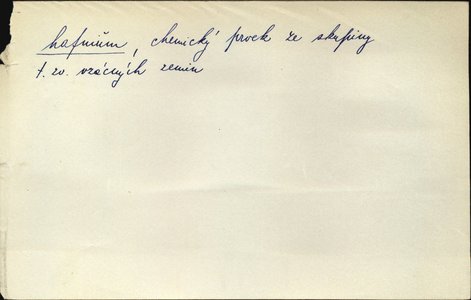 hafnium, chemický prvek ze skupiny
t. zv. vzácných zemin